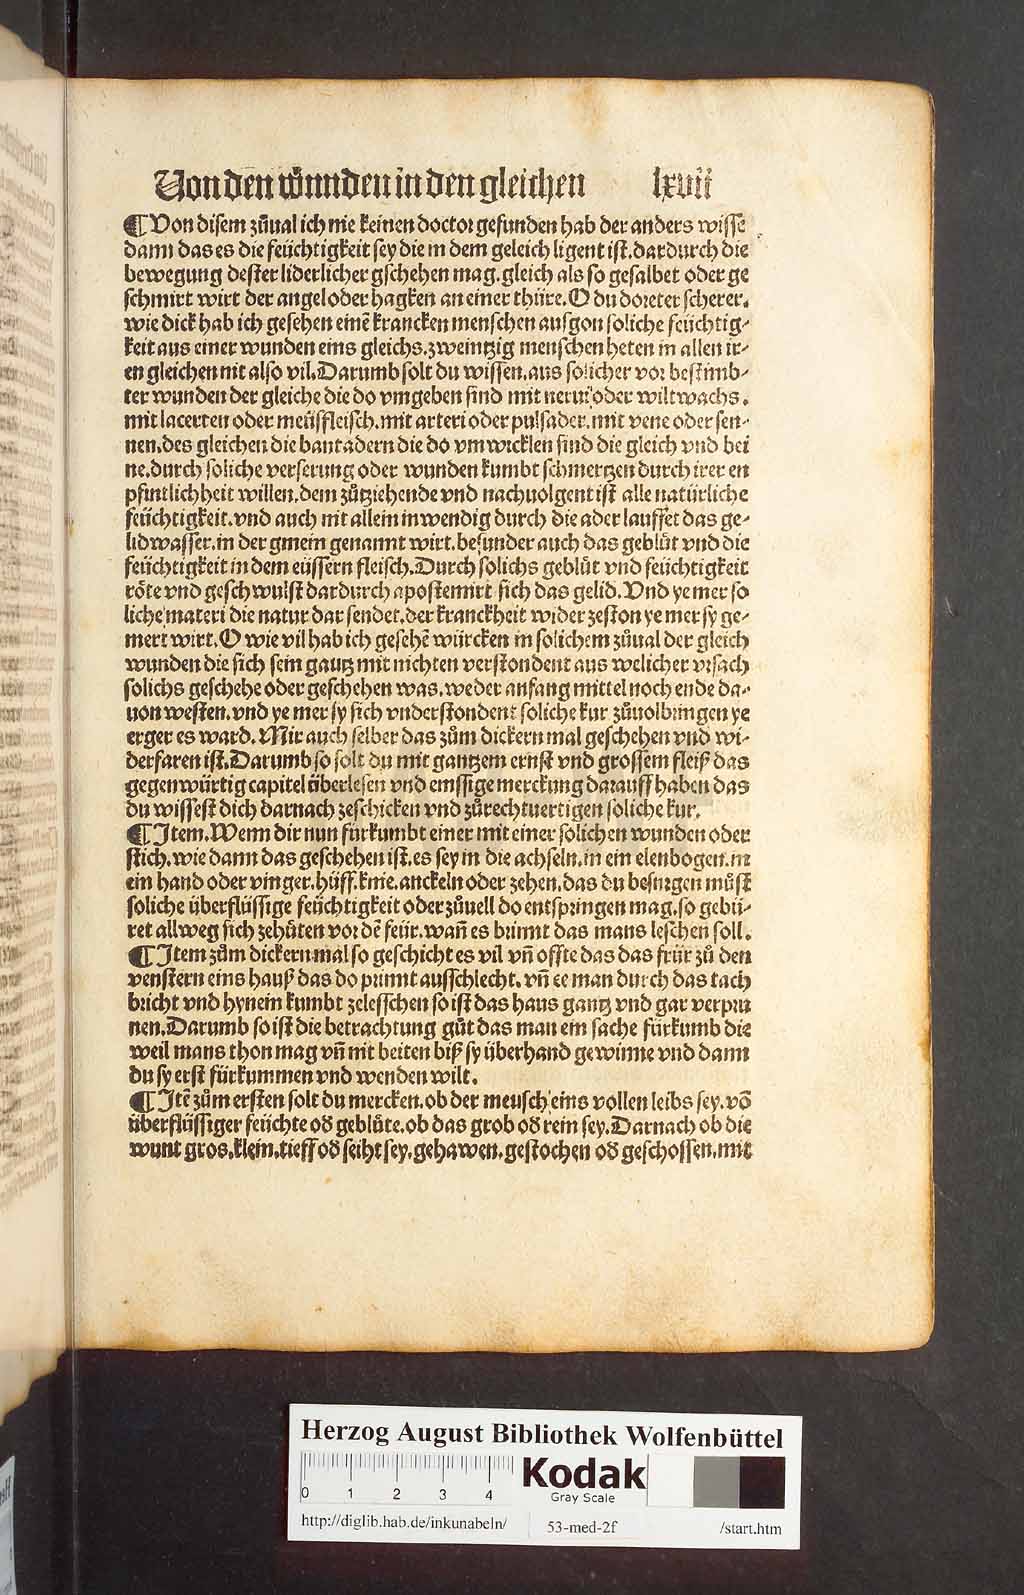 Von den wůnnden in den gleichen lxvii
¶ Von disem zůual ich nie keinen doctor gefunden hab der anders wisse
dann das es die feüchtigkeit sey die in dem geleich ligent ist. dardurch die
bewegung dester liderlicher gschehen mag. gleich als so gesalbet oder ge
schmirt wirt der angel oder hagken an einer thüre. O du doreter scherer.
wie dick hab ich gesehen einē krancken menschen ausgon soliche feüchtig⸗
keit aus einer wunden eins gleichs. zweintzig menschen heten in allen ir⸗
en gleichen nit also vil. Darumb solt du wissen. aus solicher vor bestimb⸗
ter wunden der gleiche die do vmgeben sind mit nerui oder wiltwachs.
mit lacerten oder meüsfleisch. mit arteri oder pulsader. mit vene oder sen⸗
nen. des gleichen die bantadern die do vmwicklen sind die gleich vnd bei
ne. durch soliche verserung oder wunden kumbt schmertzen durch irer en
pfintlichheit willen. dem zůtziehende vnd nachuolgent ist alle natürliche
feüchtigkeit. vnd auch nit allein inwendig durch die ader lauffet das ge⸗
lidwasser. in der gmein genannt wirt. besunder auch das geblůt vnd die
feüchtigkeit in dem eüssern fleisch. Durch solichs geblůt vnd feüchtigkeit
röte vnd geschwulst dardurch apostemirt sich das gelid. Vnd ye mer so
liche materi die natur dar sendet. der kranckheit wider zeston ye mer sy ge⸗
mert wirt. O wie vil hab ich gesehē würcken in solichem zůual der gleich
wunden die sich sein gantz mit nichten verstondent aus welicher vrsach
solichs geschehe oder geschehen was. weder anfang mittel noch ende da⸗
uon westen. vnd ye mer sy sich vnderstondent soliche kur zůuolbringen ye
erger es ward. Mir auch selber das zům dickern mal geschehen vnd wi⸗
derfaren ist. Darumb so solt du mit gantzem ernst vnd grossem fleiß das
gegenwürtig capitel überlesen vnd emssige merckung darauff haben das
du wissest dich darnach zeschicken vnd zůrechtuertigen soliche kur.
¶ Item. Wenn dir nun fürkumbt einer mit einer solichen wunden oder
stich. wie dann das geschehen ist. es sey in die achseln. in ein elenbogen. in
ein hand oder vinger. hüff. knie. anckeln oder zehen. das du besorgen můst
soliche überflüssige feüchtigkeit oder zůuell do entspringen mag. so gebü⸗
ret allweg sich zehůten vor dē feür. wañ es brinnt das mans leschen soll.
¶ Item zům dickernmal so geschicht es vil vñ offte das das feür zů den
venstern eins hauß das do prinnt ausschlecht. vñ ee man durch das tach
bricht vnd hynein kumbt zelesschen so ist das haus gantz vnd gar verpru
nen. Darumb so ist die betrachtung gůt das man ein sache fürkumb die
weil mans thon mag vñ nit beiten biß sy überhand gewinne vnd dann
du sy erst fürkummen vnd wenden wilt.
¶ Itē zům ersten solt du mercken. ob der mensch eins vollen leibs sey. vō
überflüssiger feüchte oď geblůte. ob das grob oď rein sey. Darnach ob die
wunt gros. klein. tieff oď seiht sey. gehawen. gestochen oď geschossen. mit
Herzog August Bibliothek Wolfenbüttel
0 1 2 3 4
Kodak
Gray Scale
http://diglib.hab.de/inkunabeln/ 53-med-2f /start.htm